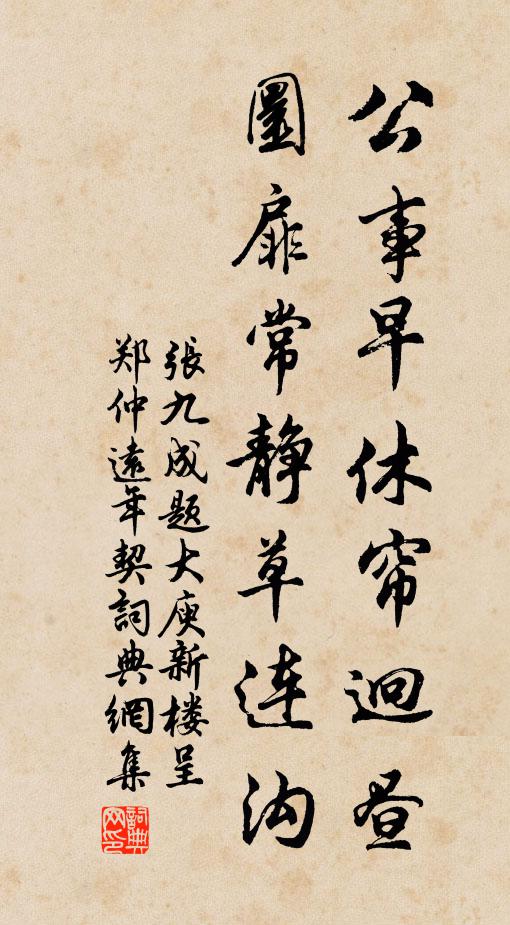 公事早休帘迥昼
圜扉常静草连沟
張九成题大庾新楼呈
郑仲遠年契詞典網集
詞典网印